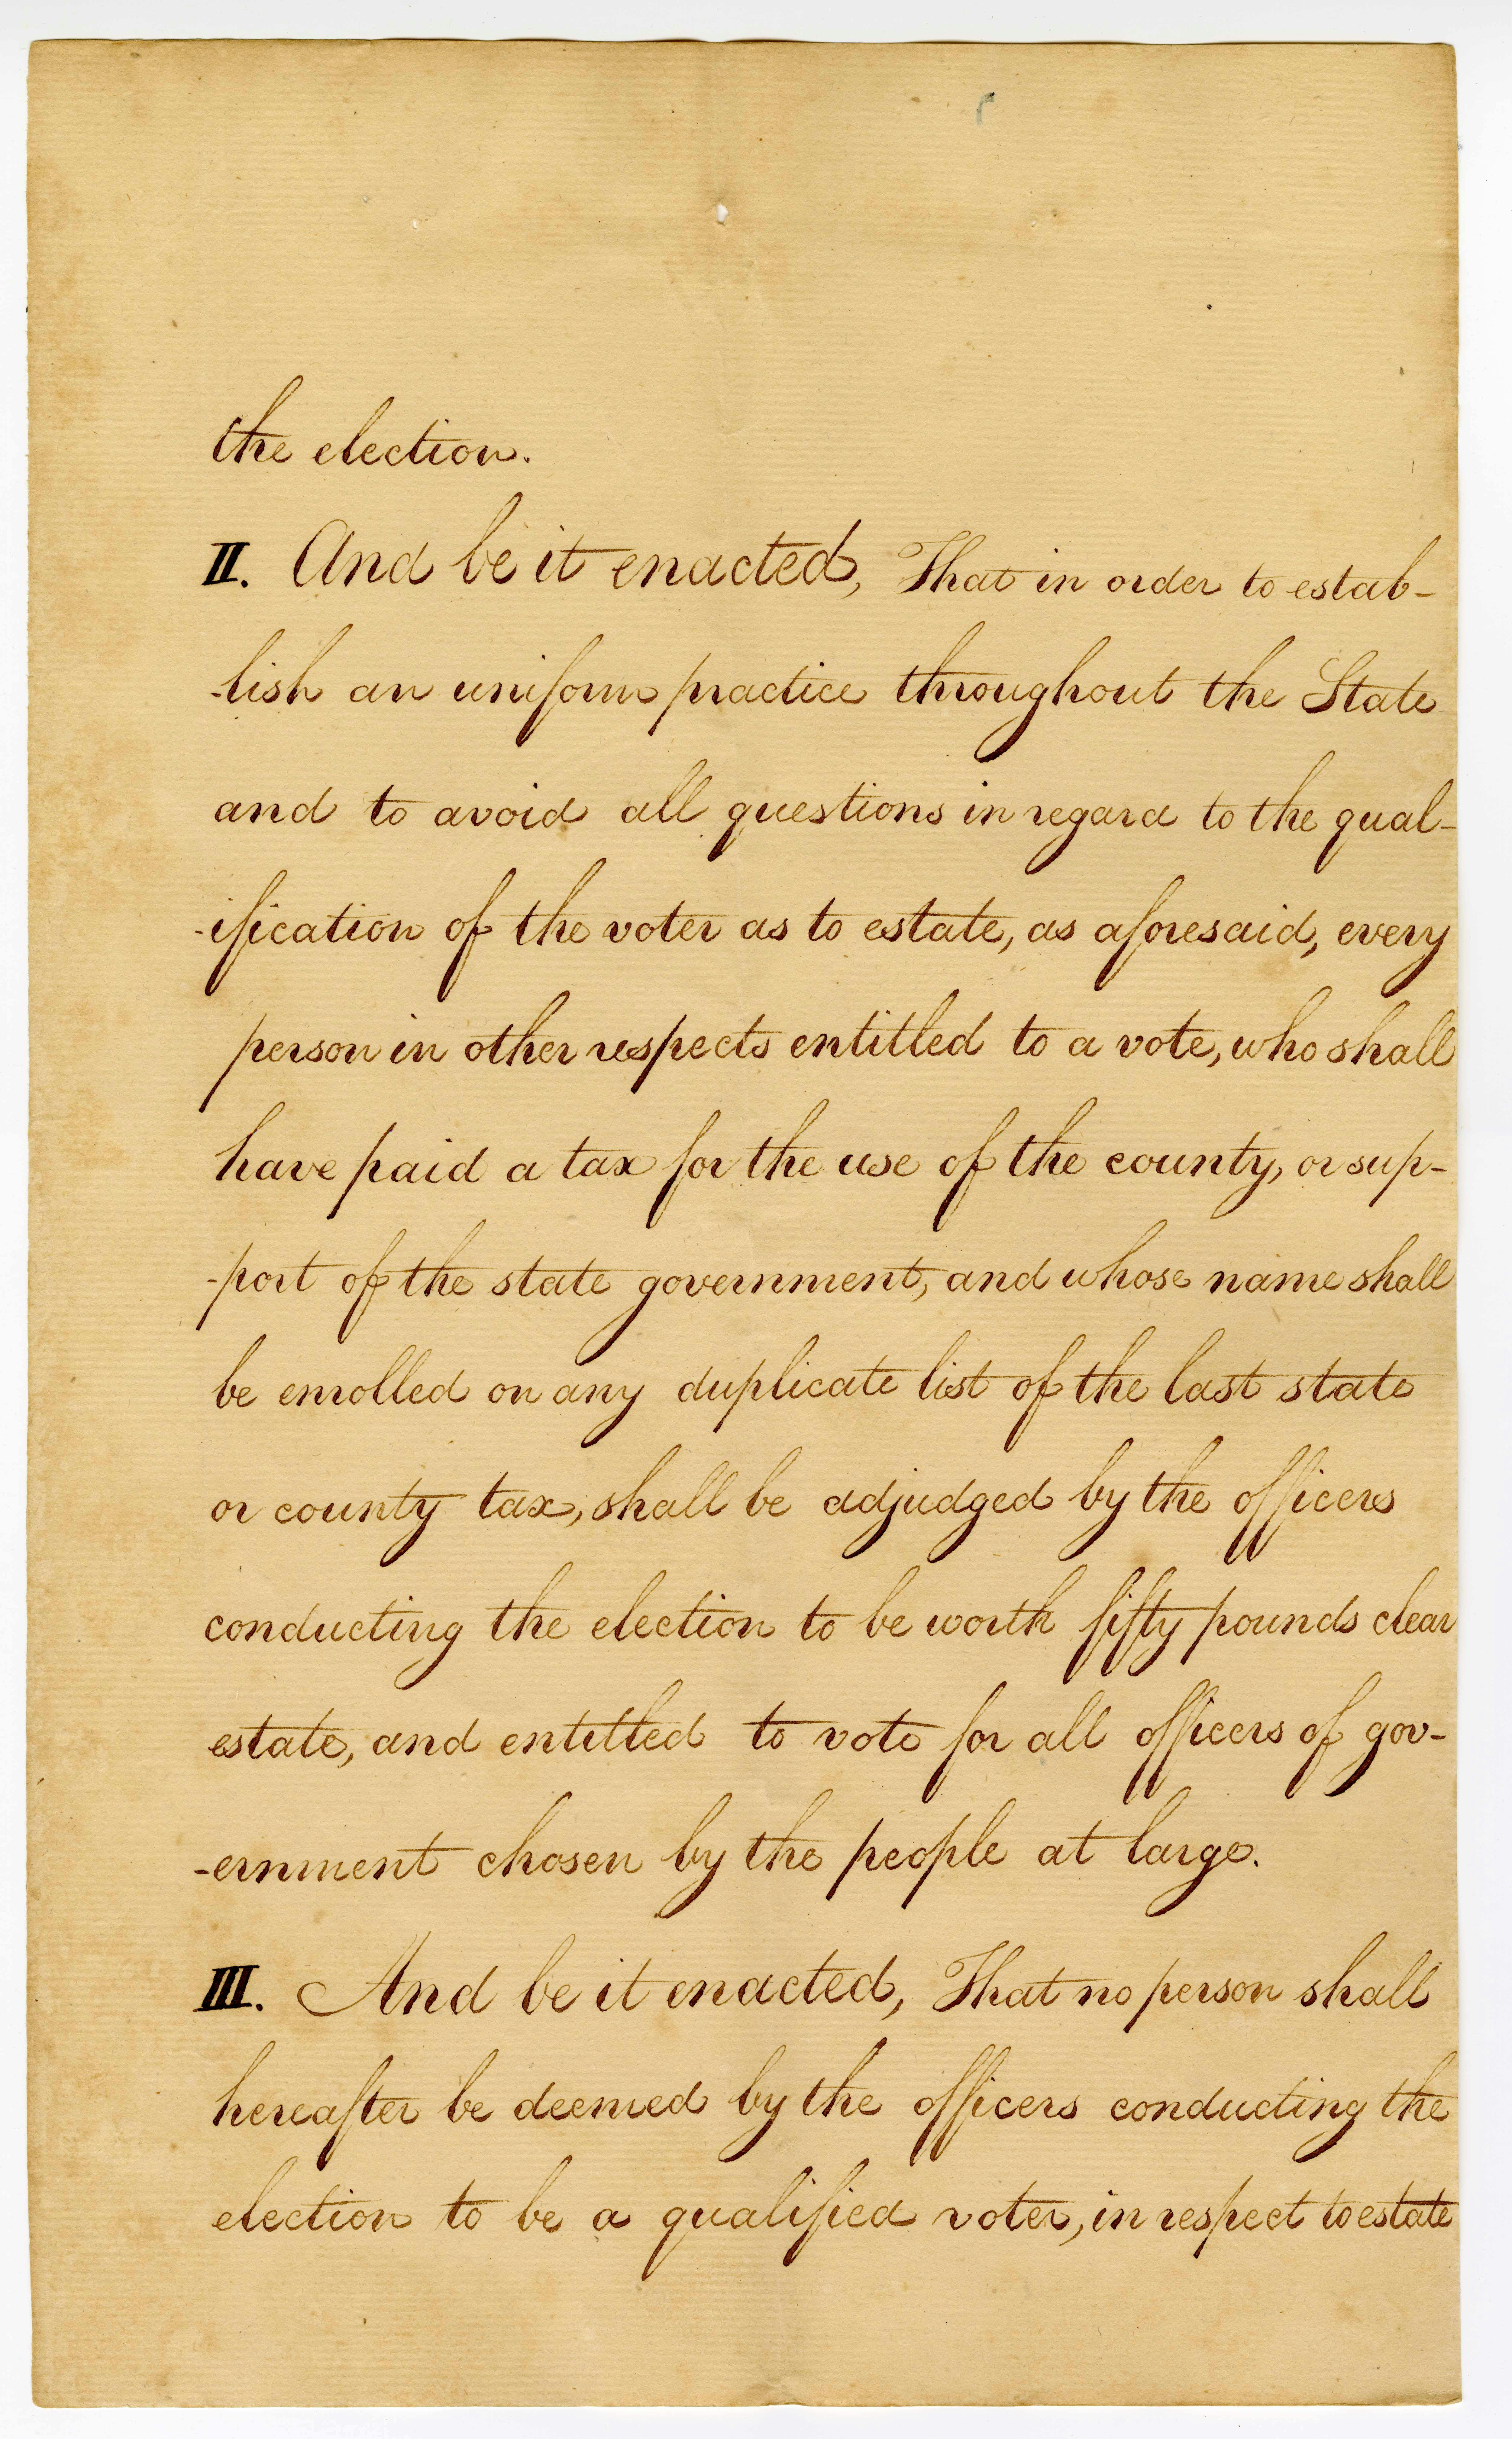 the election.
II. And be it enacted, That in order to estab-
-lish an uniform practice throughout the State
and to avoid all questions in regard to the qual-
-ification of the voter as to estate, as aforesaid, every
person in other respects entitled to a vote, who shall
have paid a tax for the use of the county, or sup-
-port of the state government, and whose name shall
be enrolled on any duplicate list of the last state
or county tax, shall be adjudged by the officers
conducting the election to be worth fifty pounds clear
estate, and entitled to vote for all officers of gov-
-ernment chosen by the people at large.
III. And be it enacted, That no person shall
hereafter be deemed by the officers conducting the
election to be a qualified voter, in respect to estate